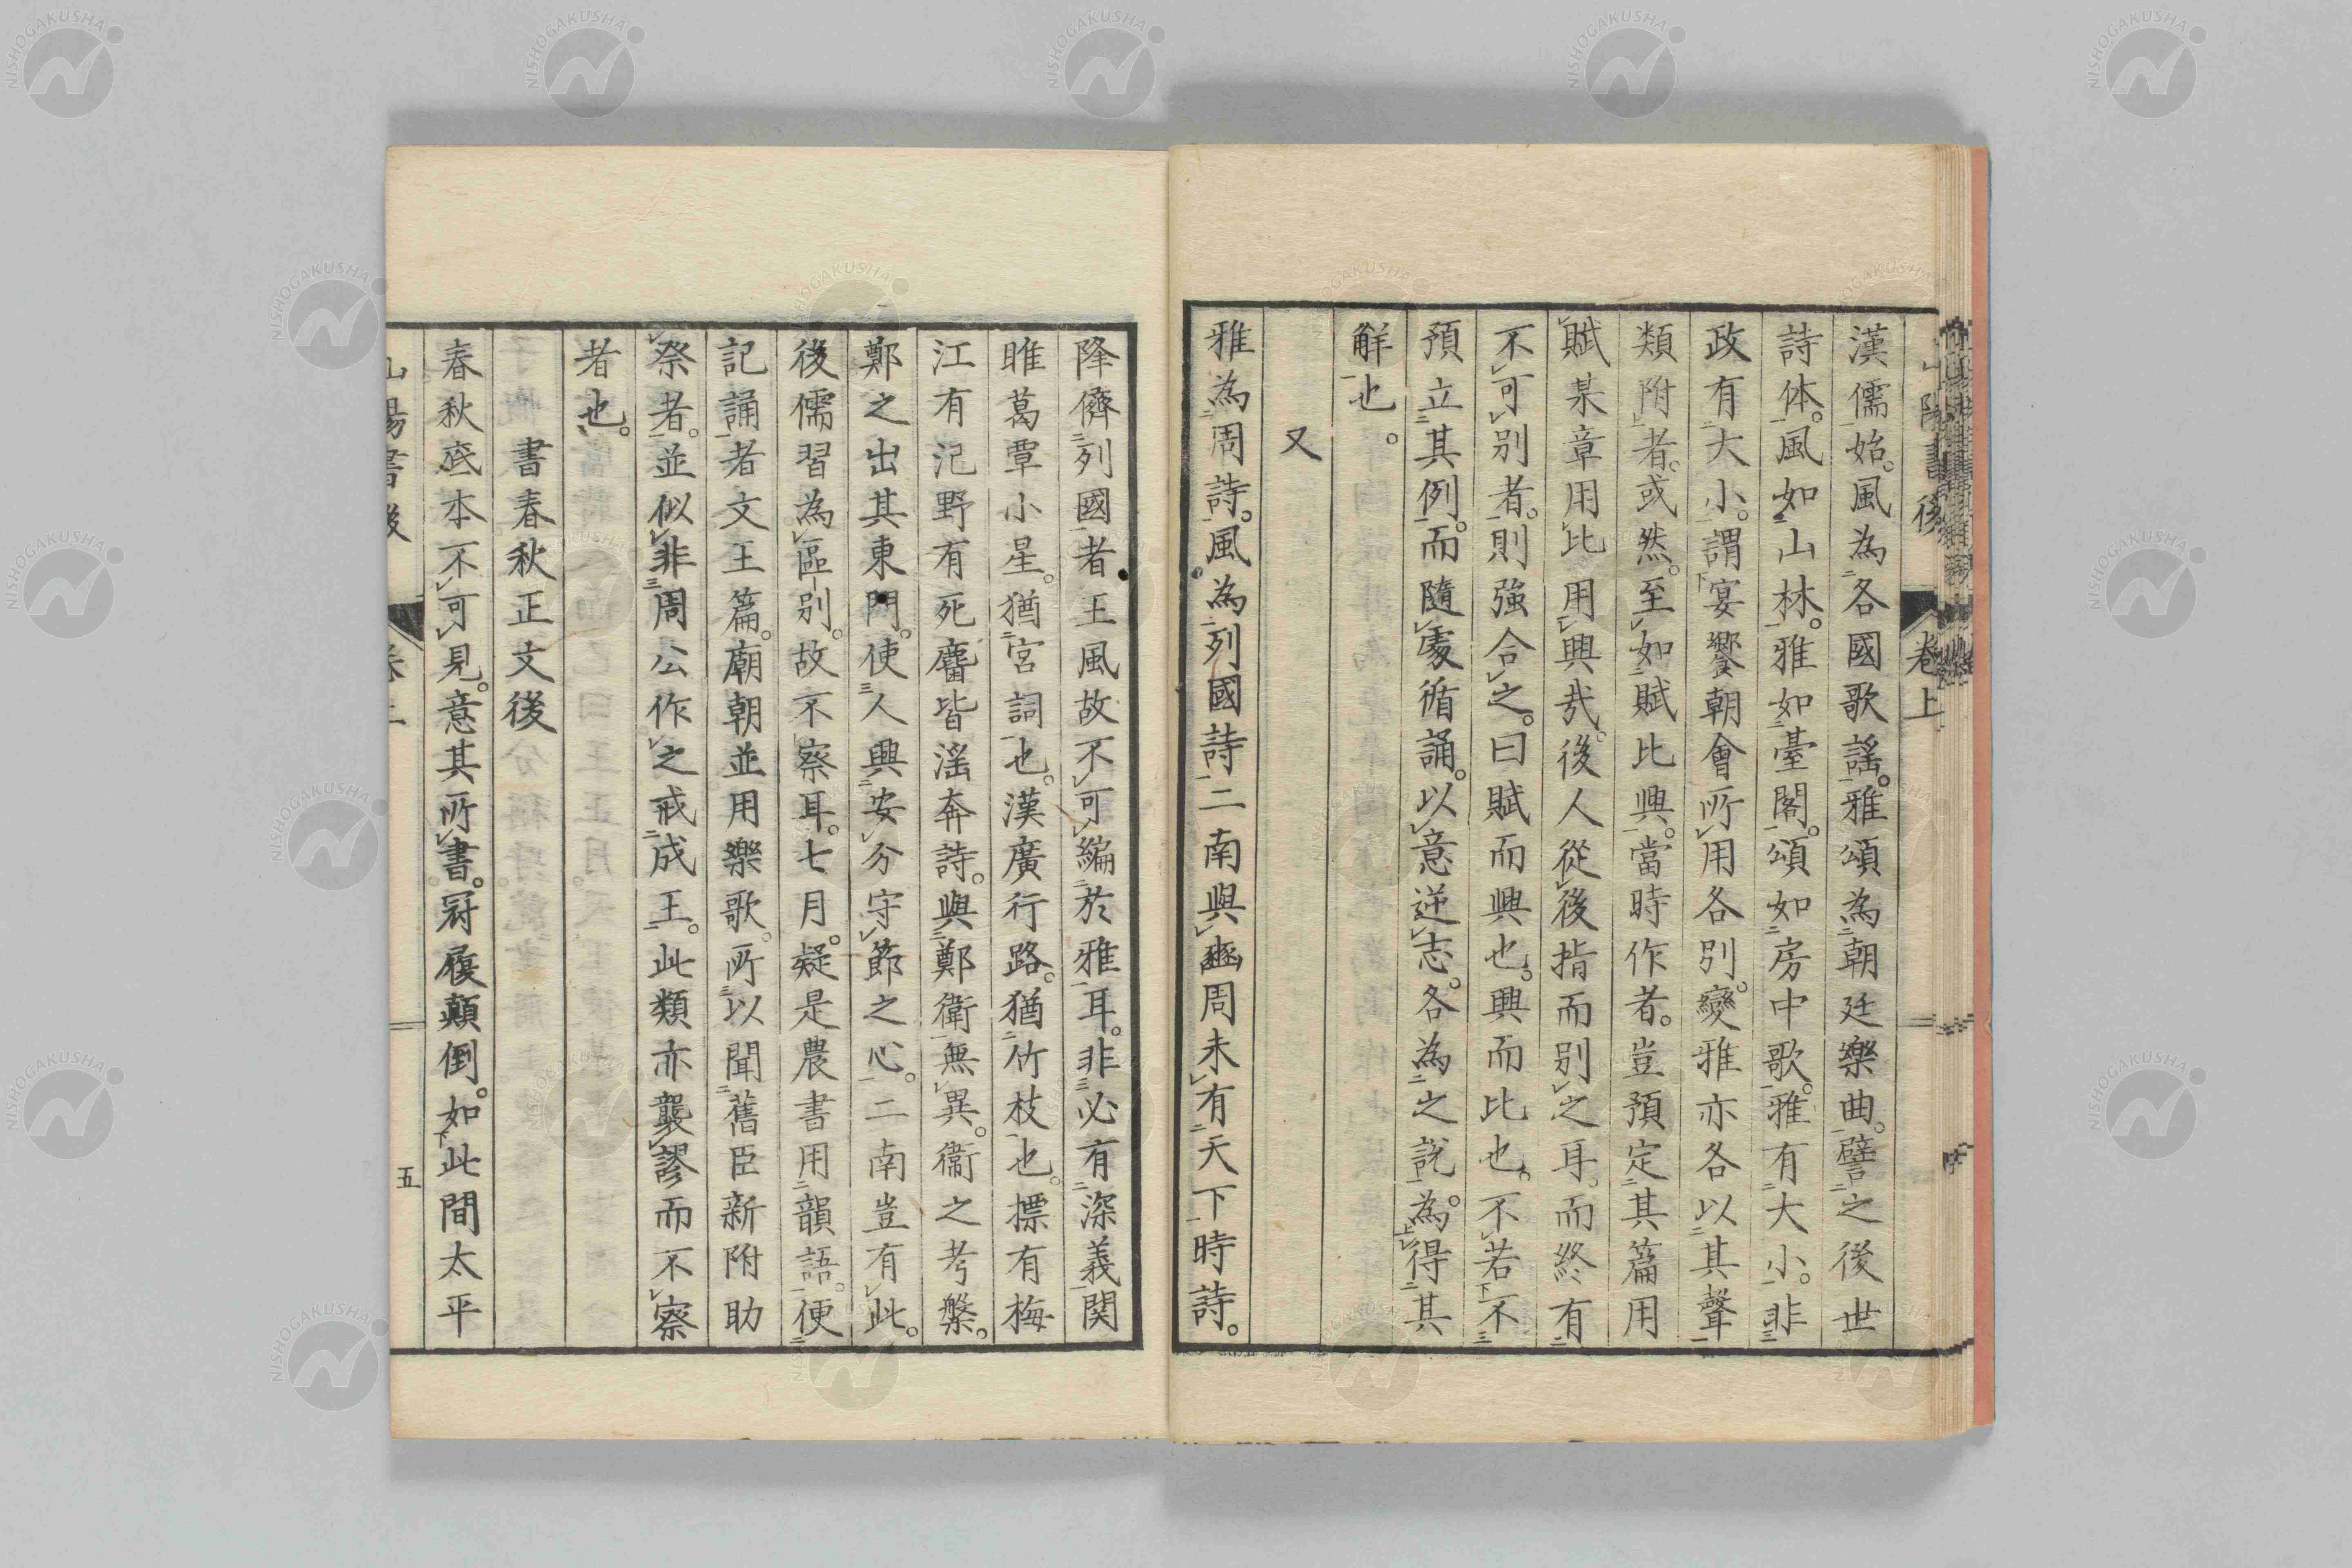 漢儒始。風為各國歌謠。雅頌為朝廷樂曲。譬之後世
詩体。風如山林。雅如臺閣。頌如房中歌。雅有大小。非
政有大小。謂宴饗朝會所用各別。變雅亦各以其聲
類附者。或然。至如賦比興。當時作者。豈預定其篇用
賦某章用比用興哉。後人從後指而別之耳。而終有
不可別者。則強合之。曰賦而興也。興而比也。不若不
預立其例。而隨處循誦。以意逆志。各為之說。為得其
解也。
又
雅為周詩。風為列國詩二南與豳周未有天下時詩。
降儕列國者王風故不可編於雅耳。非必有深義関
雎葛覃小星。猶宮詞也。漢廣行路。猶竹枝也。摽有梅
江有汜野有死麕皆淫奔詩。與鄭衛無異。衞之考槃。
鄭之出其東門。使人興安分守節之心。二南豈有此。
後儒習為區別。故不察耳。七月。疑是農書用韻語。便
記誦者文王篇。廟朝並用樂歌。所以聞舊臣新附助
祭者。並似非周公作之戒成王。此類亦襲謬而不察
者也。
書春秋正文後
春秋底本不可見。意其所書。冠履顛倒。如此間太平
卷上
五